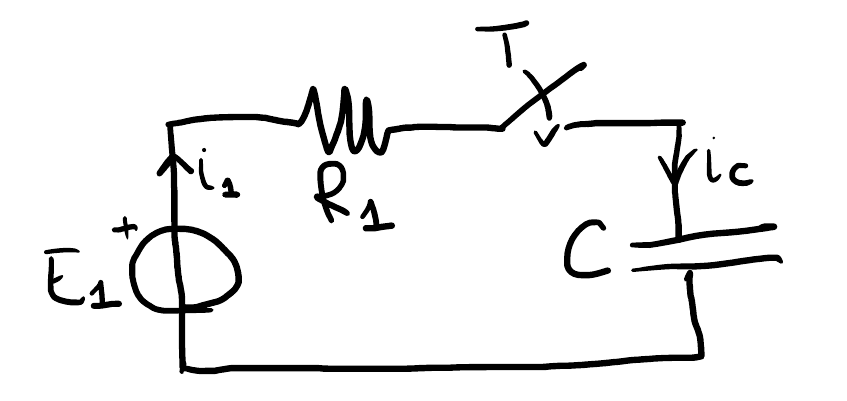 T
i₁
R₁
ic
+
E₁
C